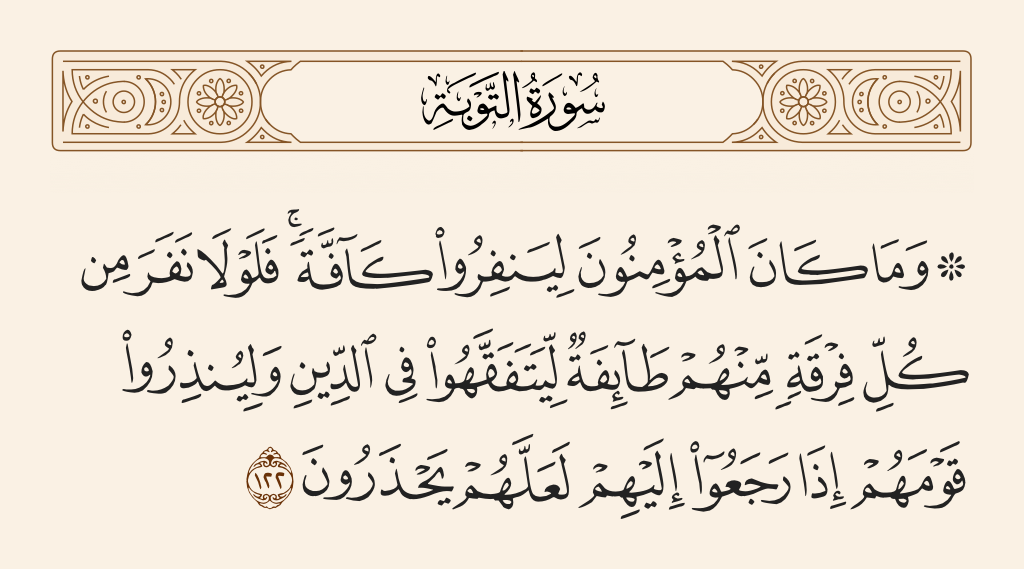 سُورَةُ التَّوْبَةِ
۞ وَمَا كَانَ ٱلْمُؤْمِنُونَ لِيَنفِرُوا۟ كَآفَّةً ۚ فَلَوْلَا نَفَرَ مِن
كُلِّ فِرْقَةٍ مِّنْهُمْ طَآئِفَةٌ لِّيَتَفَقَّهُوا۟ فِى ٱلدِّينِ وَلِيُنذِرُوا۟
قَوْمَهُمْ إِذَا رَجَعُوٓا۟ إِلَيْهِمْ لَعَلَّهُمْ يَحْذَرُونَ ١٢٢